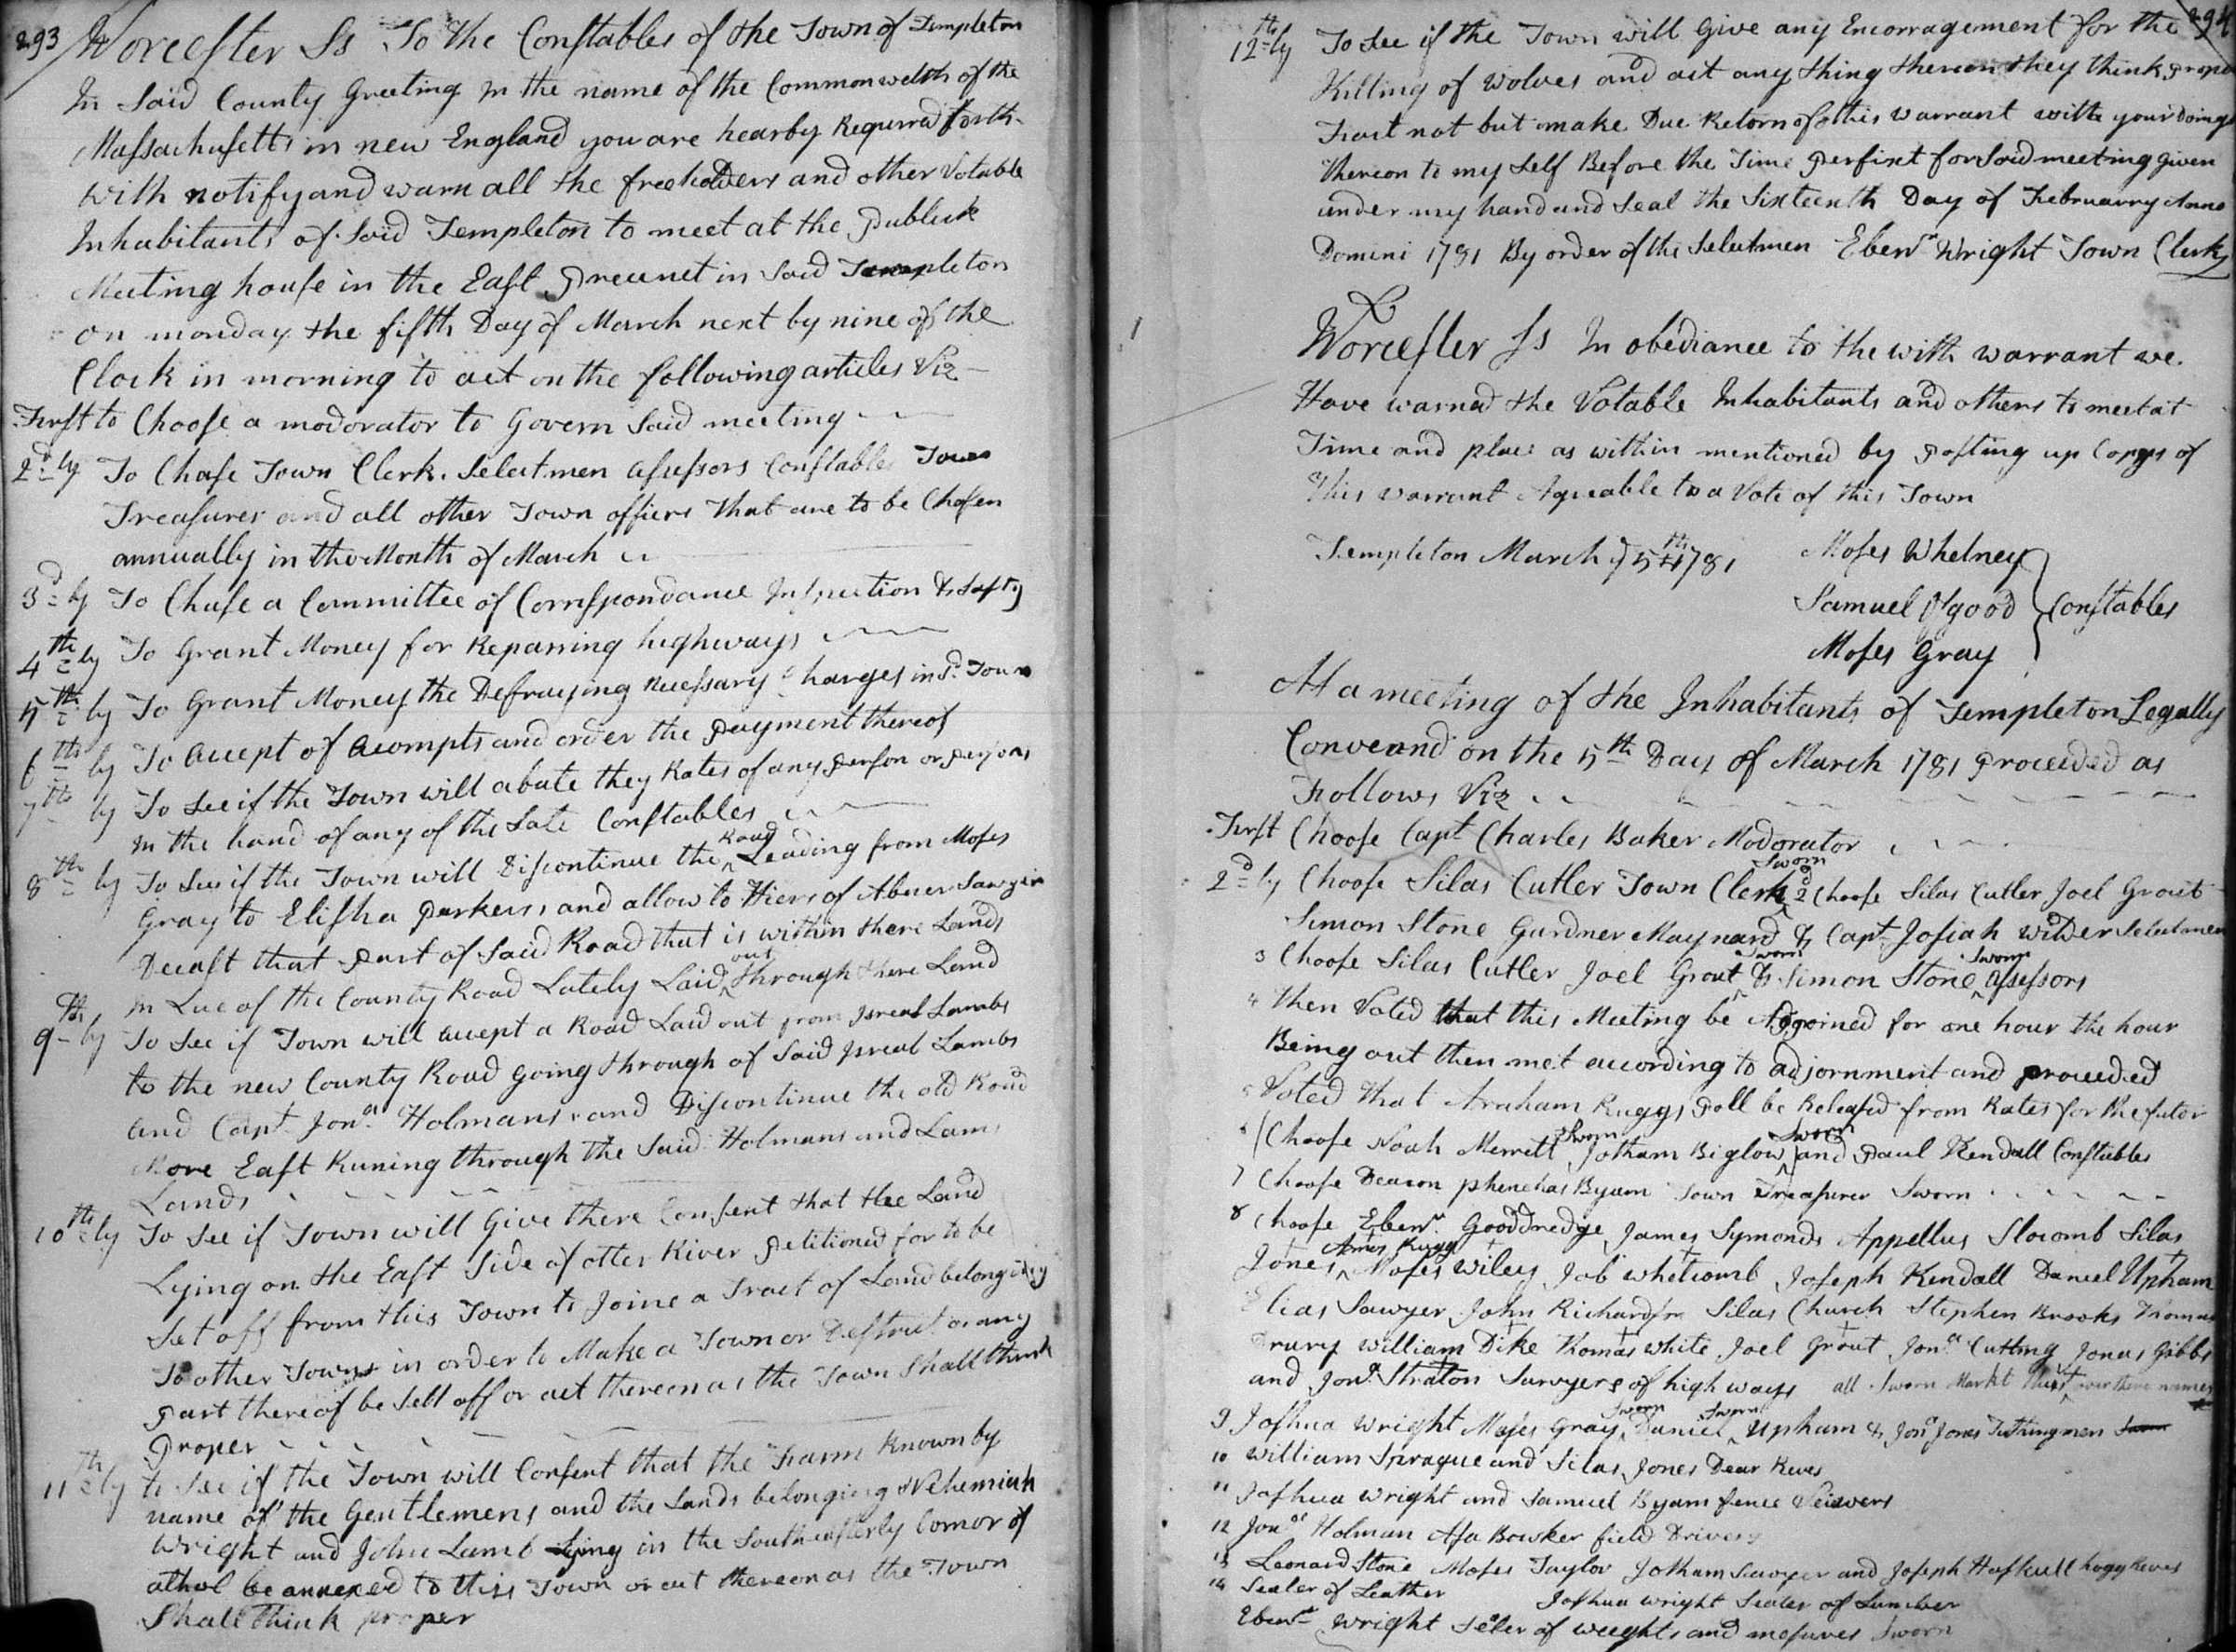 293
Worcester Ss To the Constables of the Town of Templeton
In Said County Greeting In the name of the Commonwelth of the
Massachusetts in new England you are hearby Requirred forth-
with notify and warn all the freeholders and other Votable
Inhabitants of Said Templeton to meet at the Publick
Meeting house in the East Precinct in Said Templeton
on monday the fifth Day of March next by nine of the
Clock in morning to act on the following articles Viz-
First to Choose a modorator to Govern Said meeting
2dly To Chase Town Clerk. Selectmen Asessors Constables Town
Treasurer and all other Town officers that are to be Chosen
annually in the Month of March
3dly To Chuse a Committee of Correspondance Inspection & Safty
4thly To Grant Money for Reparring highways
5thly To Grant Money the Defraying necessary Charges in Sd Town
6thly To accept of acompts and order the Payment thereof
7thly To See if the Town will abate they Rates of any Person or Persons
in the hand of any of the Late Constables
8thly To See if the Town will Discontinue the ^Road Leading from Moses
Gray to Elisha Parkers, and allow to Hiers of Abner Sawyer
Deceast that Part of Said Road that is within there Lands
in Lue of the County Road Lately Laid ^out through there Land
9thly To See if Town will accept a Road Laid out from Isreal Lambs
to the new County Road going through of Said Isreal Lambs
and Capt Jona Holmans and Discontinue the old Road
More East Runing through the Said Holmans and Lams
Lands
10thly To See if Town will Give there Consent that the Land
Lying on the East Side of otter River Petitioned for to be
Set off from this Town to Joine a Tract of Land belonging
To other Towns in order to Make a Town or Destrict or any
Part thereof be Sett off or act thereon as the Town Shall think
Proper
11thly to See if the Town will Consent that the Farm Known by
name of the Gentlemens and the Lands belonging Nehemiah
Wright and John Lamb Lying in the Southeasterly Cornor of
athol be annexed to this Town or act thereon as the Town
Shall Think proper
294
12thly To See if the Town will Give any Encorragement for the
Killing of wolves and act any thing thereon they think proper
Fail not but make Due Retorn of this warrant with your doings
thereon to my Self Before the Time Perfixt for Said meeting given
under my hand and Seal the Sixteenth Day of Februarry Anno
Domini 1781 By order of the Selectmen Ebenr Wright Town Clerk
Worcester Ss In obediance to the with warrant we
Have warned the Votable Inhabitants and others to meet at
Time and place as within mentioned by Posting up Copys of
This warrant Agreable to a Vote of this Town
Templeton March ye 5th 1781
Moses Whelney
Samuel Osgood Constables
Moses Gray
At a meeting of the Inhabitants of Templeton Legally
Conveand on the 5th Day of March 1781 Proceeded as
Follows Viz
First Choose Capt Charles Baker Modorator
2dly Choose Silas Cutler Town Clerk ^Sworn 2d Choose Silas Cutler Joel Grout
Simon Stone Gardner Maynard & Capt Josiah wilder Selectmen
3 Choose Silas Cutler Joel Grout ^Sworn & Simon Stone ^Sworn assessors
4 then Voted that this Meeting be Adjorned for one hour the hour
Being out then met according to adjornment and proceeded
5 Voted That Araham Ruggs Poll be Released from Rates for the futor
6 Choose Noah Merritt Sworn Jotham Biglow ^Sworn and Paul Kendall Constables
7 Choose Deacon phenehas Byam Town Treasurer Sworn
8 Choose Ebenr Gooddredge James Symonds Appellus Slocomb Silas
Jones ^Amos Rugg Moses wiley Job whitcomb Joseph Kendall Daniel Upham
Elias Sawyer John Richardson Silas Church Stephen Brooks Thomas
Drury William Dike Thomas white Joel Grout Jona Cutting Jonas Gibbs
and Jona Straton Survyers of high ways all Sworn Markt thus + over there names
9 Joshua Wright Moses Gray ^Sworn Daniel ^Sworn Upham & Jona Jones Tuthingmen
10 William Sprague and Silas Jones Dear Reves
11 Joshua Wright and Samuel Byam fence Veiwers
12 Jona Holman Asa Bowker field Drivers
13 Leonard Stone Moses Taylor Jotham Sawyer and Joseph Haskull hoggReves
14 Sealer of Leather Joshua Wright Sealer of Lumber
Ebenr Wright Seler of weights and mesures Sworn